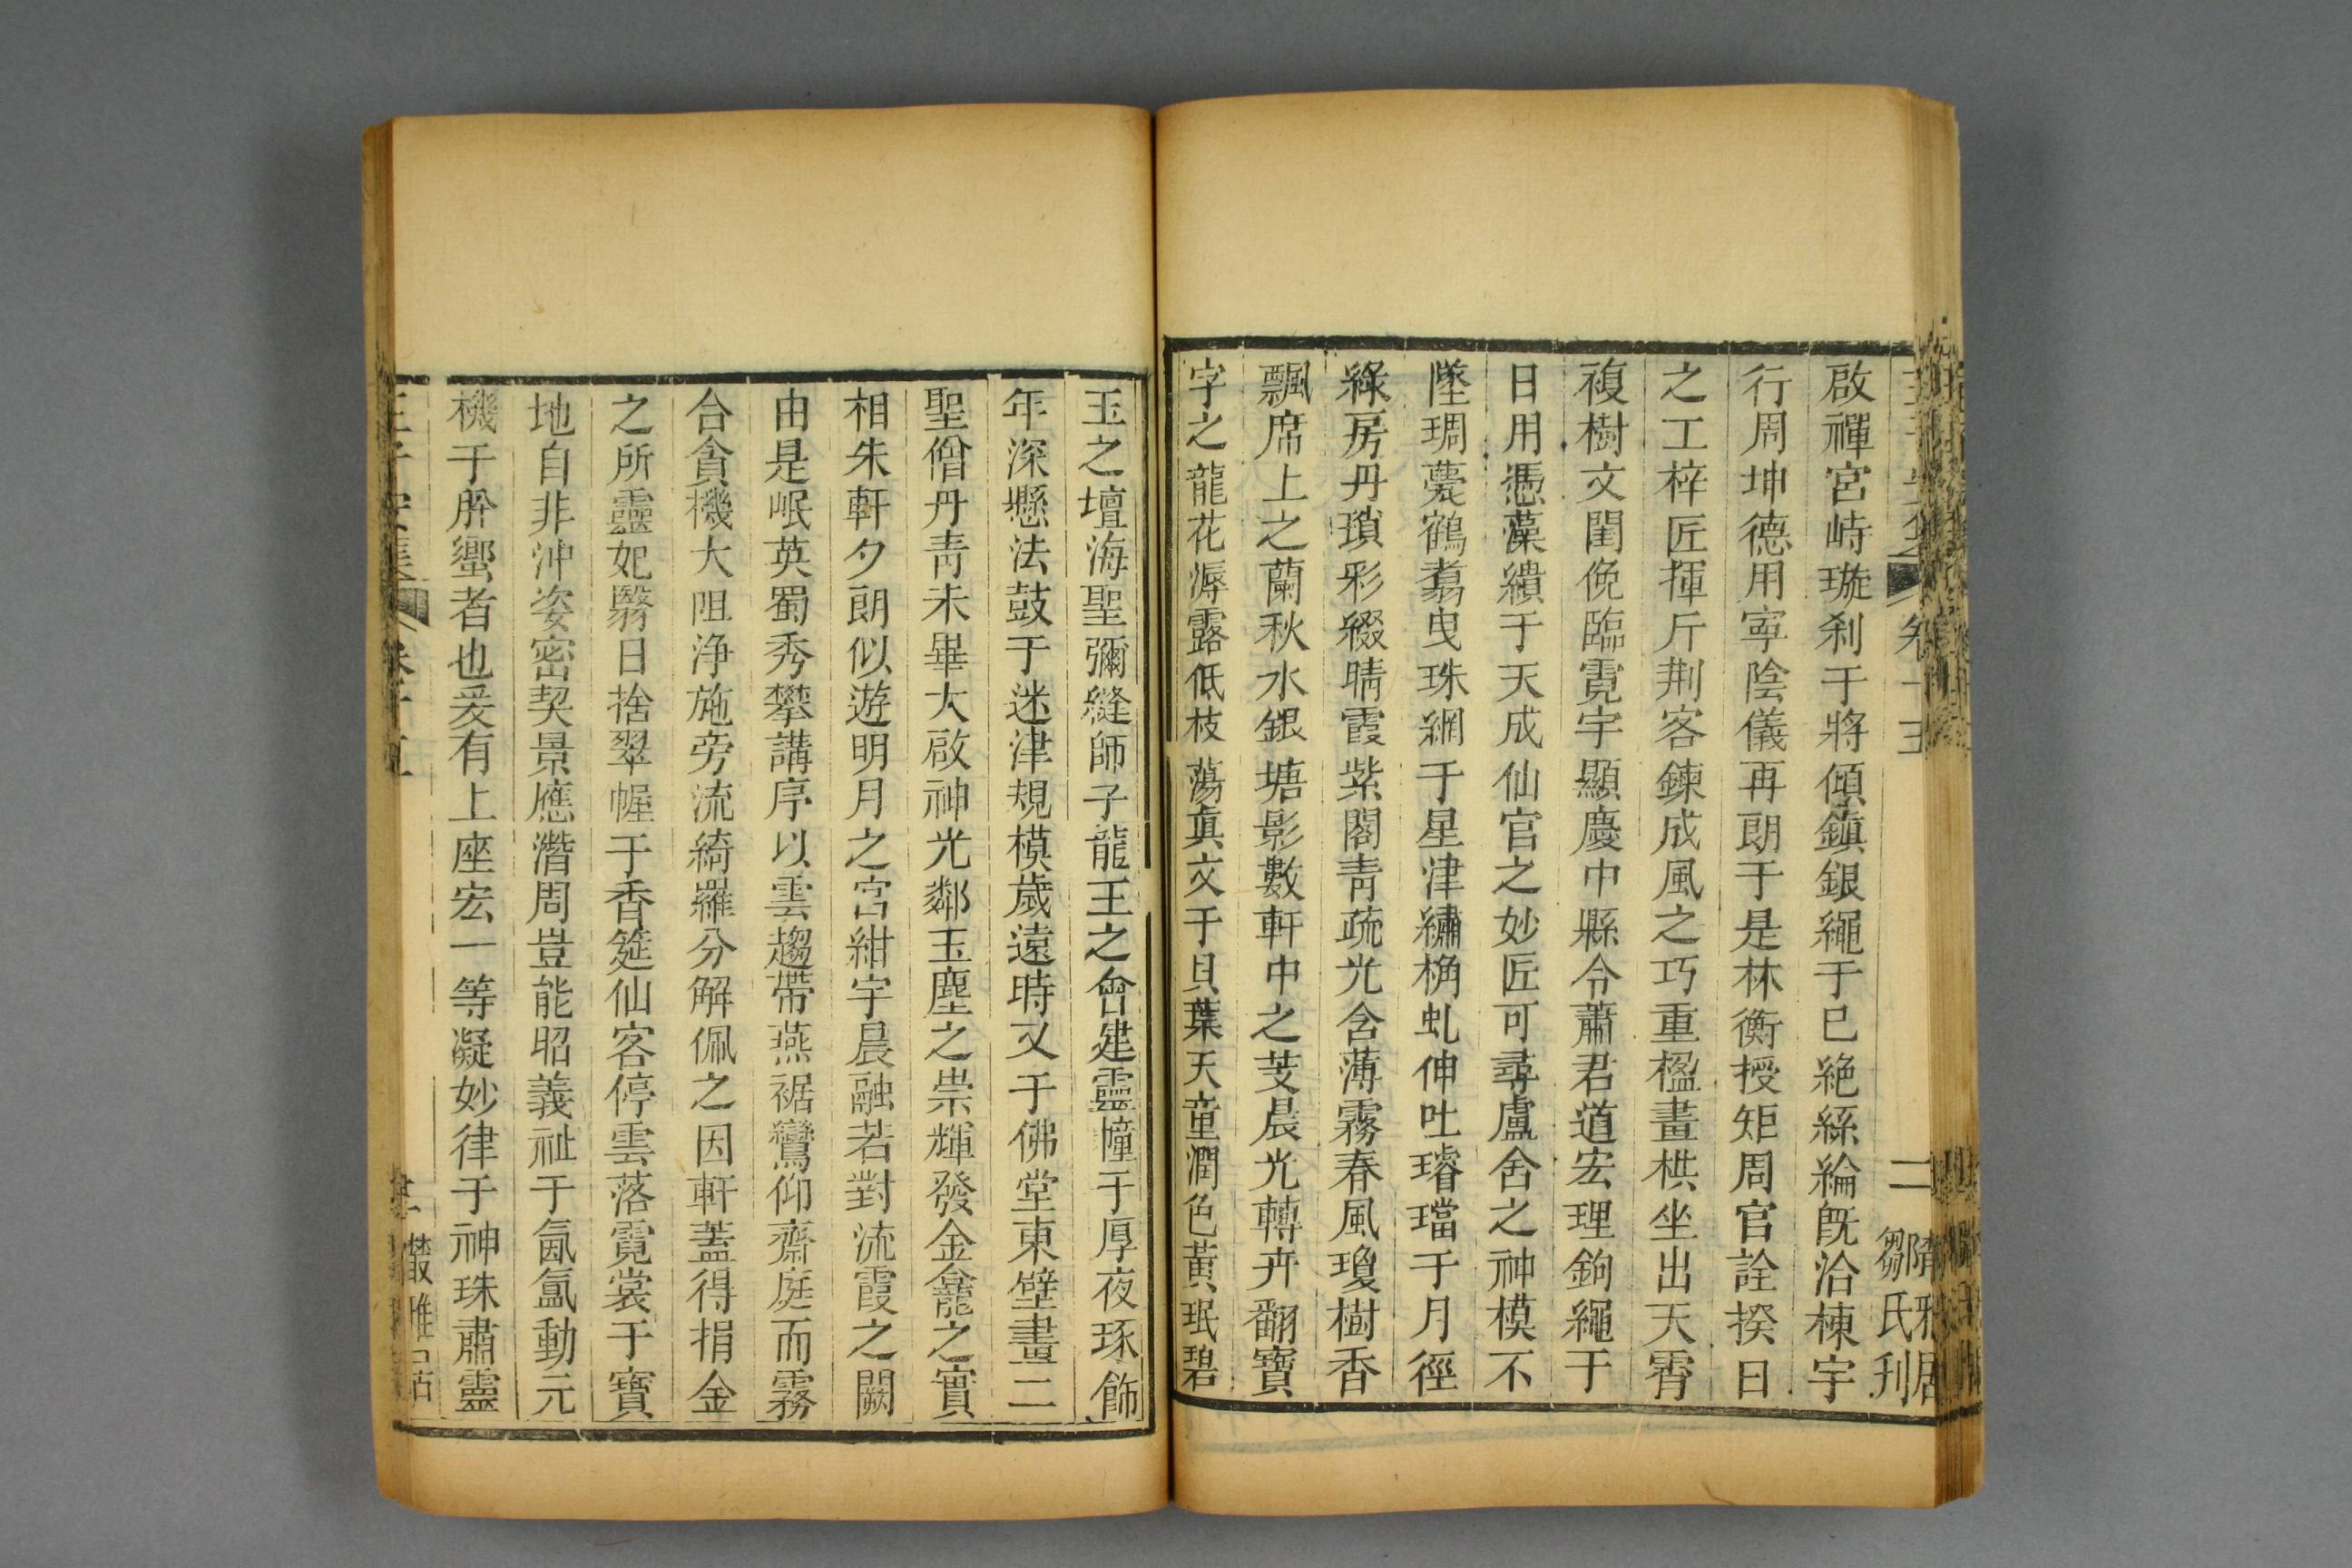 啟禪宮峙璇刹于將傾鎮銀繩于已絶絲綸旣洽棟宇
行周坤德用寧陰儀再朗于是林衡授矩周官詮揆日
之工梓匠揮斤荆客鍊成風之巧重楹畫栱坐出天霄
複樹文閨俛臨霓宇顯慶中縣令蕭君道宏理鉤繩于
日用憑藻繢于天成仙官之妙匠可尋盧舍之神模不
墜琱甍鶴翥曳珠網于星津繡桷虬伸吐璿璫于月徑
綠房丹瑣彩綴晴霞紫閣靑疏光含薄霧春風瓊樹香
飄席上之蘭秋水銀塘影數軒中之芰晨光轉卉翻寶
字之龍花溽露低枝蕩眞文于貝葉天童潤色黃珉碧
玉之壇海聖彌縫師子龍王之會建靈幢于厚夜琢飾
年深懸法鼓于迷津規模歲遠時又于佛堂東壁畫二
聖僧丹靑未畢大啟神光鄰玉塵之祟輝發金龕之實
相朱軒夕朗似遊明月之宮紺宇晨融若對流霞之闕
由是岷英蜀秀攀講序以雲趨帶燕裾鸞仰齋庭而霧
合貪機大阻淨施旁流綺羅分解佩之因軒蓋得捐金
之所靈妃翳日捨翠幄于香筵仙客停雲落霓裳于寶
地自非沖姿密契景應潛周豈能昭義祉于氤氳動元
機于肸蠁者也爰有上座宏一等凝妙律于神珠肅靈
卷十五
二
鄒氏刋